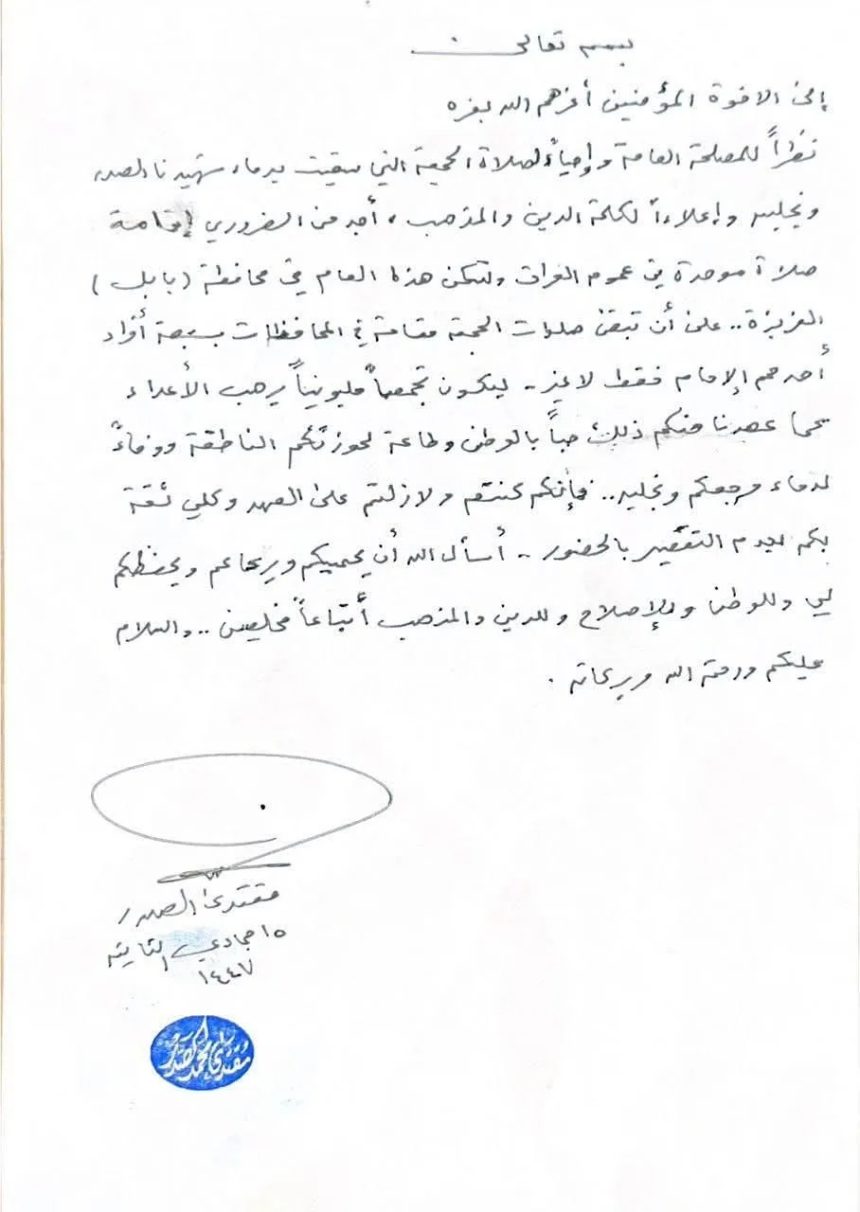 بسمه تعالى
إلى الاخوة المؤمنين أعزهم الله بعزه
نظراً للمصلحة العامة وإحياءً لصلاة الجمعة التي سقيت بدماء شهيدنا الصدر
ونجليه وإعلاءاً لكلمة الدين والمذهب، أجد من الضروري إقامة
صلاة موحدة في عموم العراق ولتكن هذا العام في محافظة (بابل)
العزيزة.. على أن تبقى صلوات الجمعة مقامة في المحافظات بسبعة أفراد
أحدهم الإمام فقط لا غير - ليكون تجمعاً مليونياً يرهب الأعداء
كما عهدنا منكم ذلك حباً بالوطن وطاعة لحوزتكم الناطقة ووفاءً
لدماء مرجعكم ونجليه.. فإنكم كنتم ولازلتم على العهد وكلي ثقة
بكم لعدم التقصير بالحضور - أسأل الله أن يحميكم ويرعاكم ويحفظكم
لي وللوطن وللإصلاح وللدين والمذهب أتباعاً مخلصين .. والسلام
عليكم ورحمة الله وبركاته.
مقتدى الصدر
١٥ جمادي الثانية
١٤٤٧
مقتدى محمد الصدر